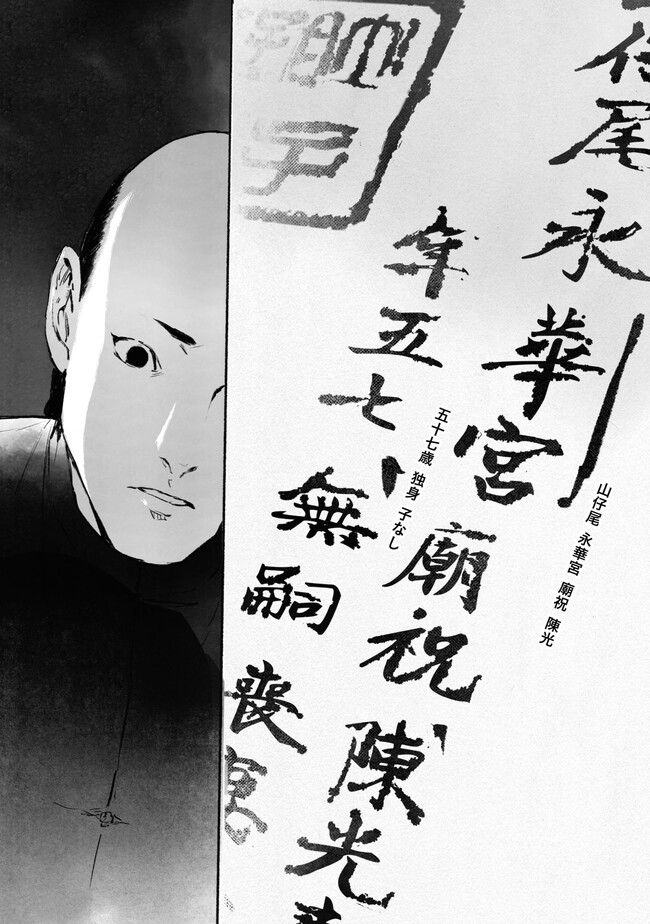 仔尾永華宮廟祝陳光
山仔尾 永華宮 廟祝 陳光
年五七、無嗣喪
五十七歳 独身 子なし